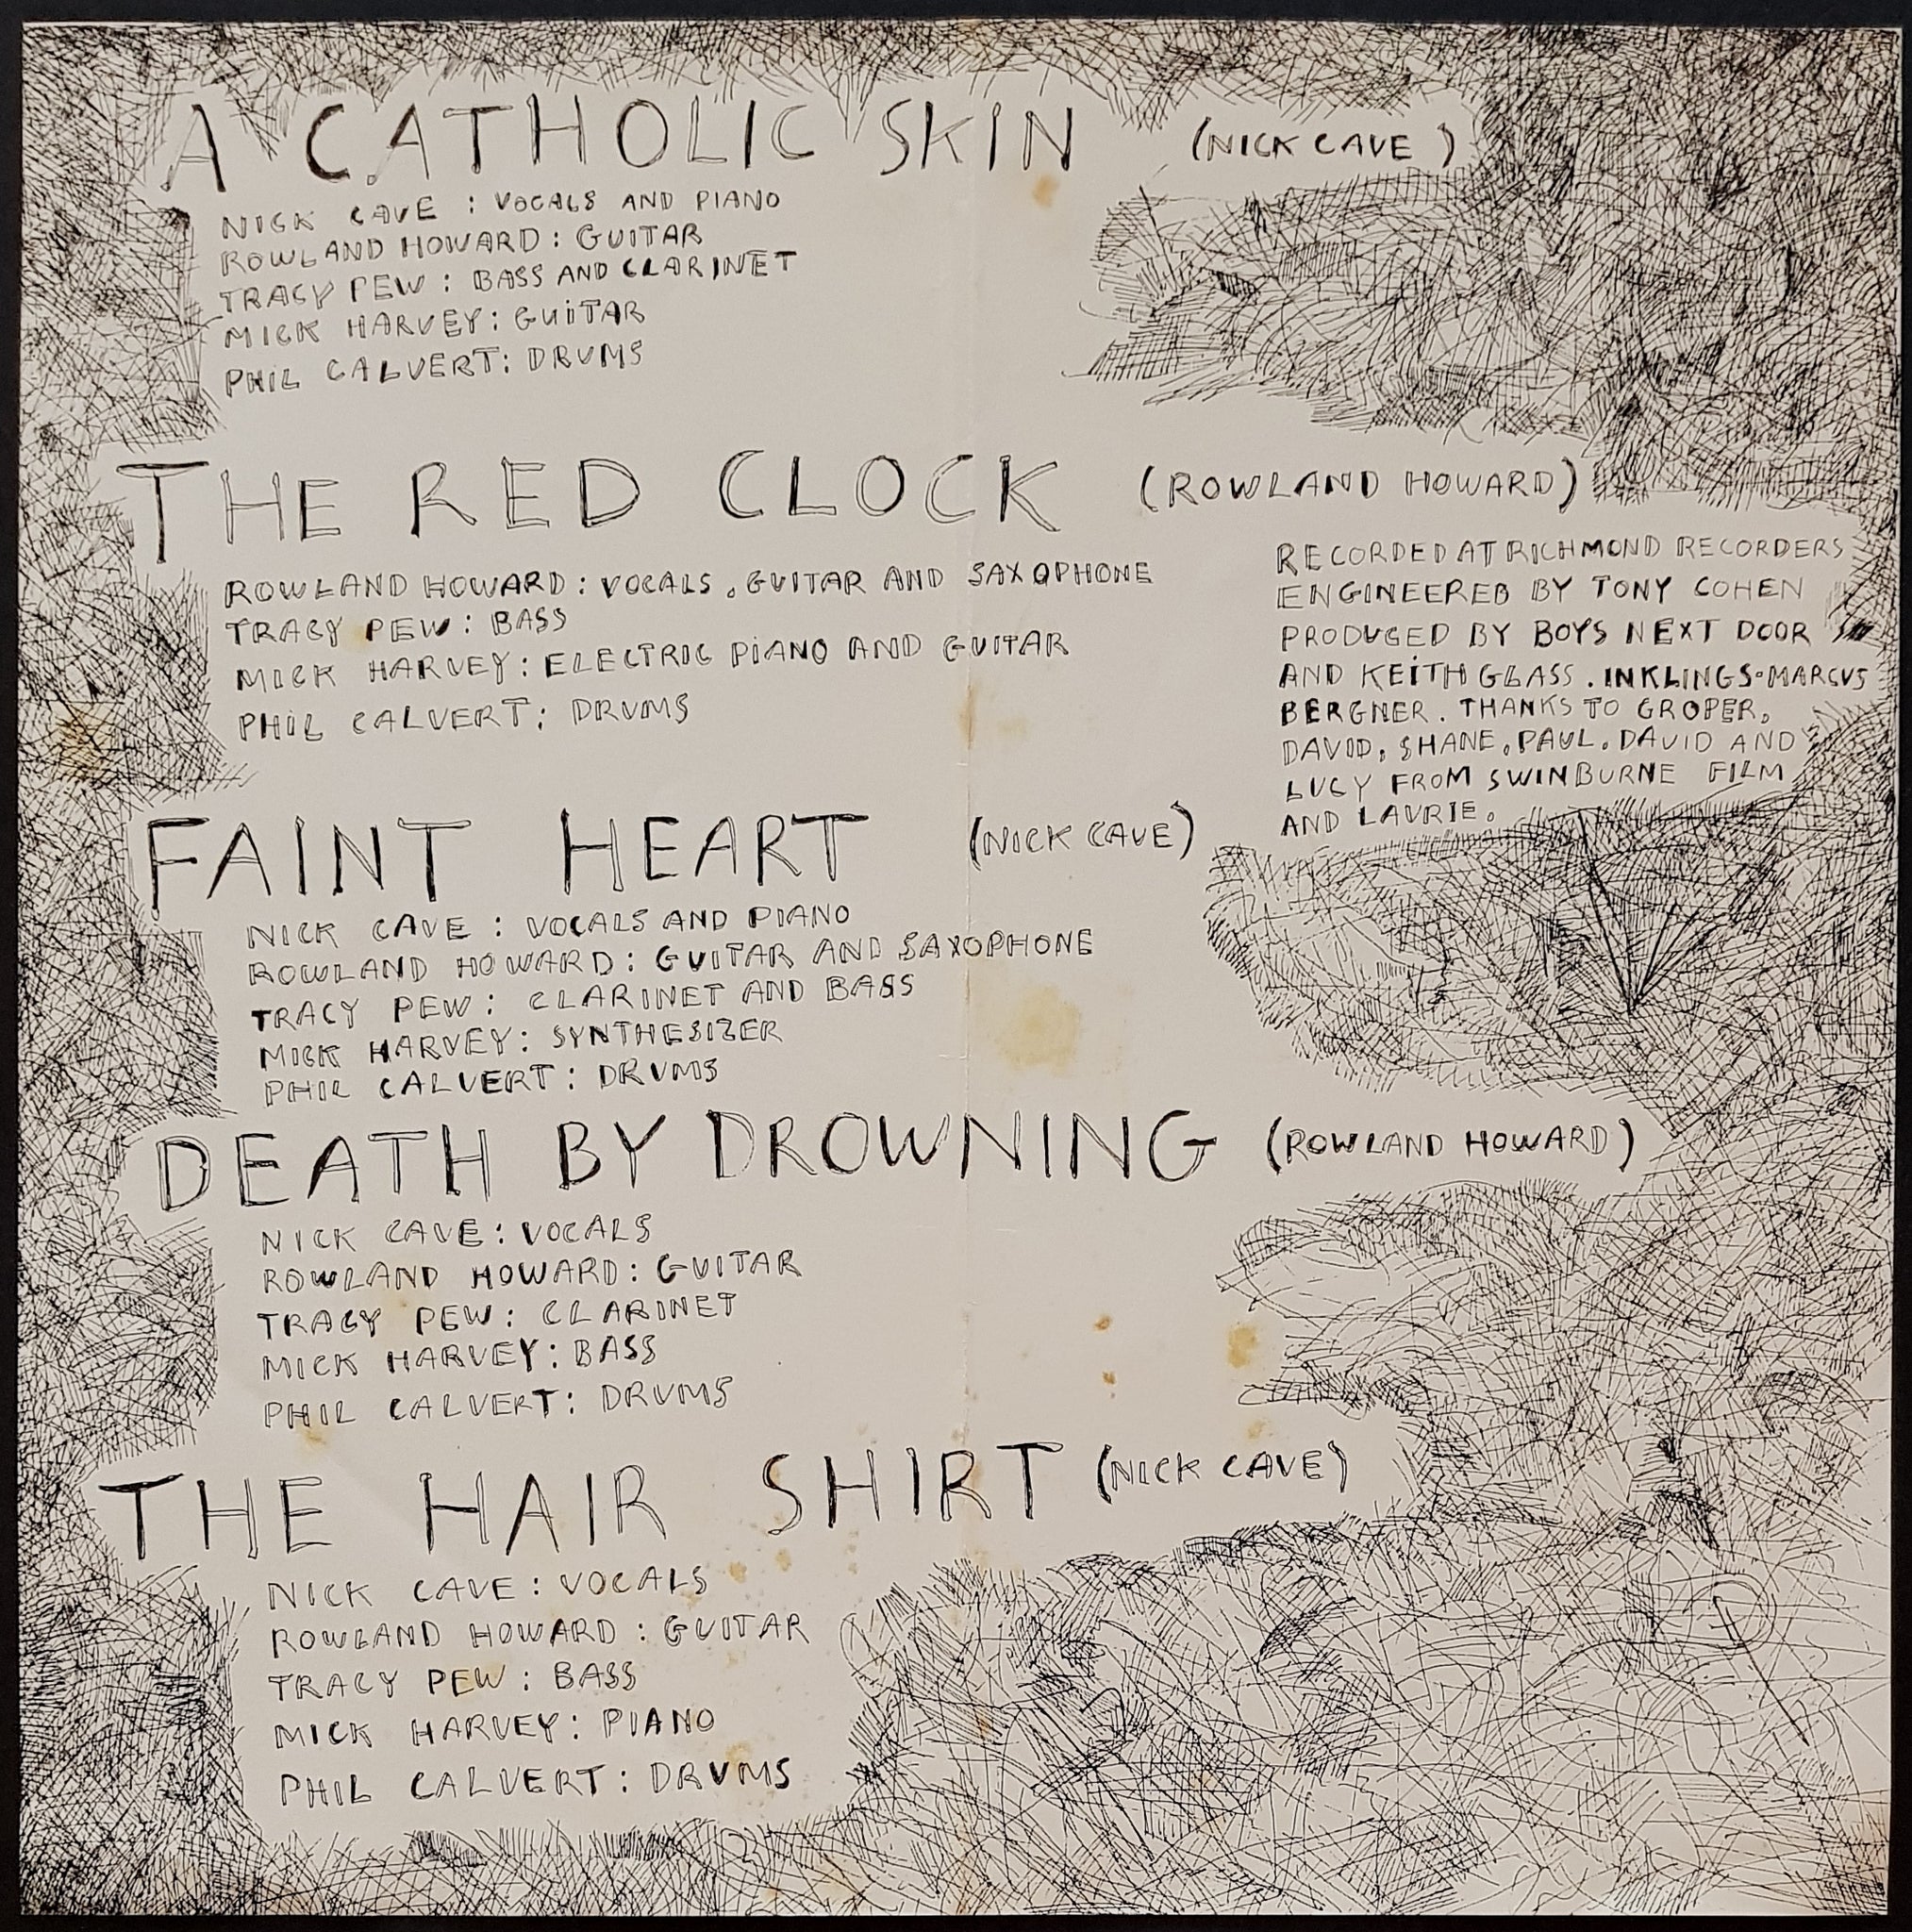 A CATHOLIC SKIN (NICK CAVE)
NICK CAVE : VOCALS AND PIANO
ROWLAND HOWARD : GUITAR
TRACY PEW : BASS AND CLARINET
MICK HARVEY: GUITAR
PHIL CALVERT: DRUMS
THE RED CLOCK (ROWLAND HOWARD)
ROWLAND HOWARD : VOCALS, GUITAR AND SAXOPHONE
TRACY PEW : BASS
MICK HARVEY: ELECTRIC PIANO AND GUITAR
PHIL CALVERT: DRUMS
RECORDED AT RICHMOND RECORDERS
ENGINEERED BY TONY COHEN
PRODUCED BY BOYS NEXT DOOR
AND KEITH GLASS. INKLINGS-MARCUS
BERGNER. THANKS TO GROPER,
DAVID, SHANE, PAUL, DAVID AND
LUCY FROM SWINBURNE FILM
AND LAURIE.
FAINT HEART (NICK CAVE)
NICK CAVE : VOCALS AND PIANO
ROWLAND HOWARD : GUITAR AND SAXOPHONE
TRACY PEW : CLARINET AND BASS
MICK HARVEY: SYNTHESIZER
PHIL CALVERT : DRUMS
DEATH BY DROWNING (ROWLAND HOWARD)
NICK CAVE : VOCALS
ROWLAND HOWARD : GUITAR
TRACY PEW : CLARINET
MICK HARVEY: BASS
PHIL CALVERT: DRUMS
THE HAIR SHIRT (NICK CAVE)
NICK CAVE : VOCALS
ROWLAND HOWARD : GUITAR
TRACY PEW : BASS
MICK HARVEY: PIANO
PHIL CALVERT : DRUMS